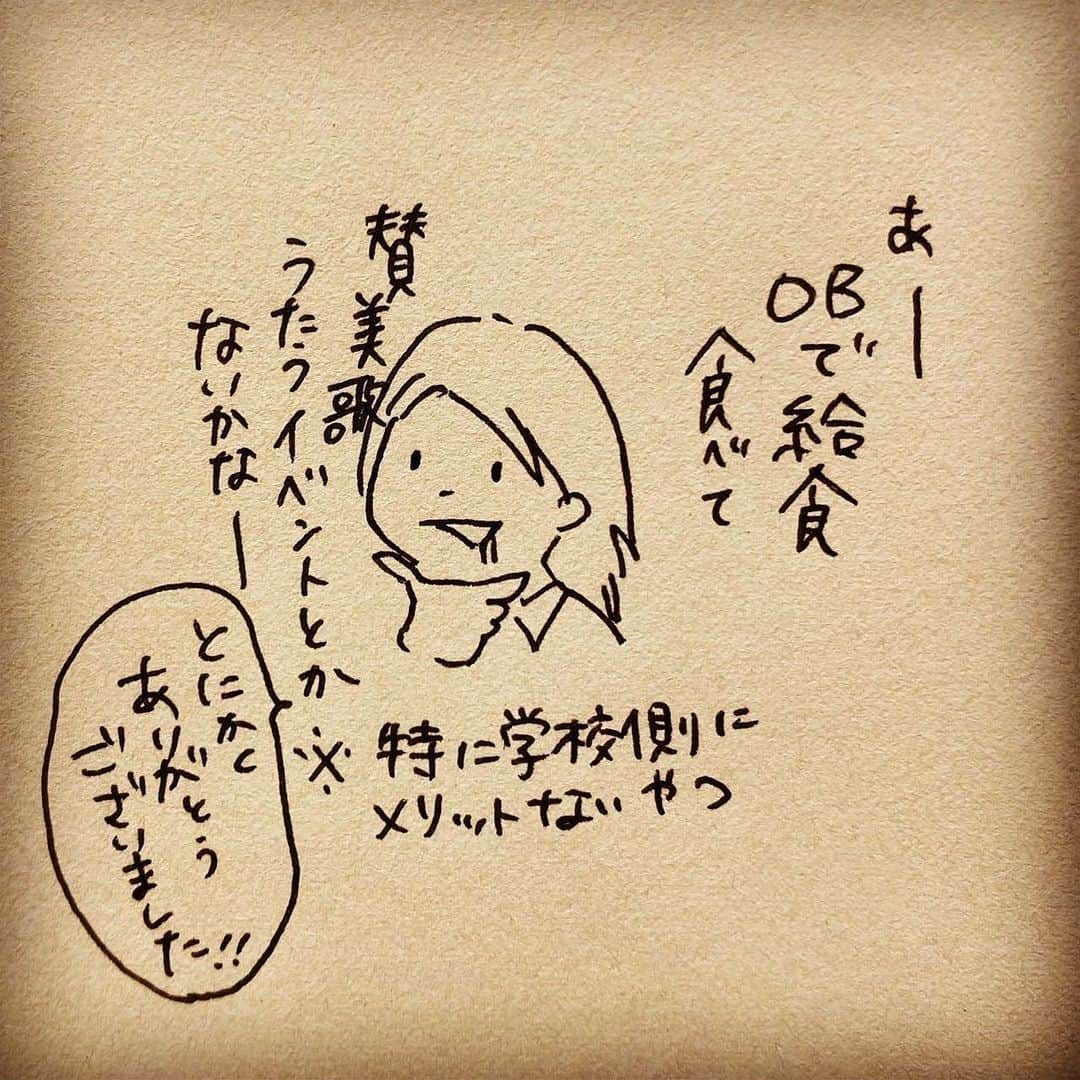 あー
OBで給食
食べて
賛美歌
うたうイベントとか
ないかなー
※特に学校側に
メリットないやつ
とにかく
ありがとう
ございました!!